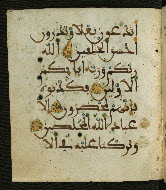 أتدعون بعلا وتذرون
أحسن الخلقين الله
ربكم ورب آبائكم
الأولين فكذبوه
فإنهم لمحضرون إلا
عباد الله المخلصين
وتركنا عليه في الآ